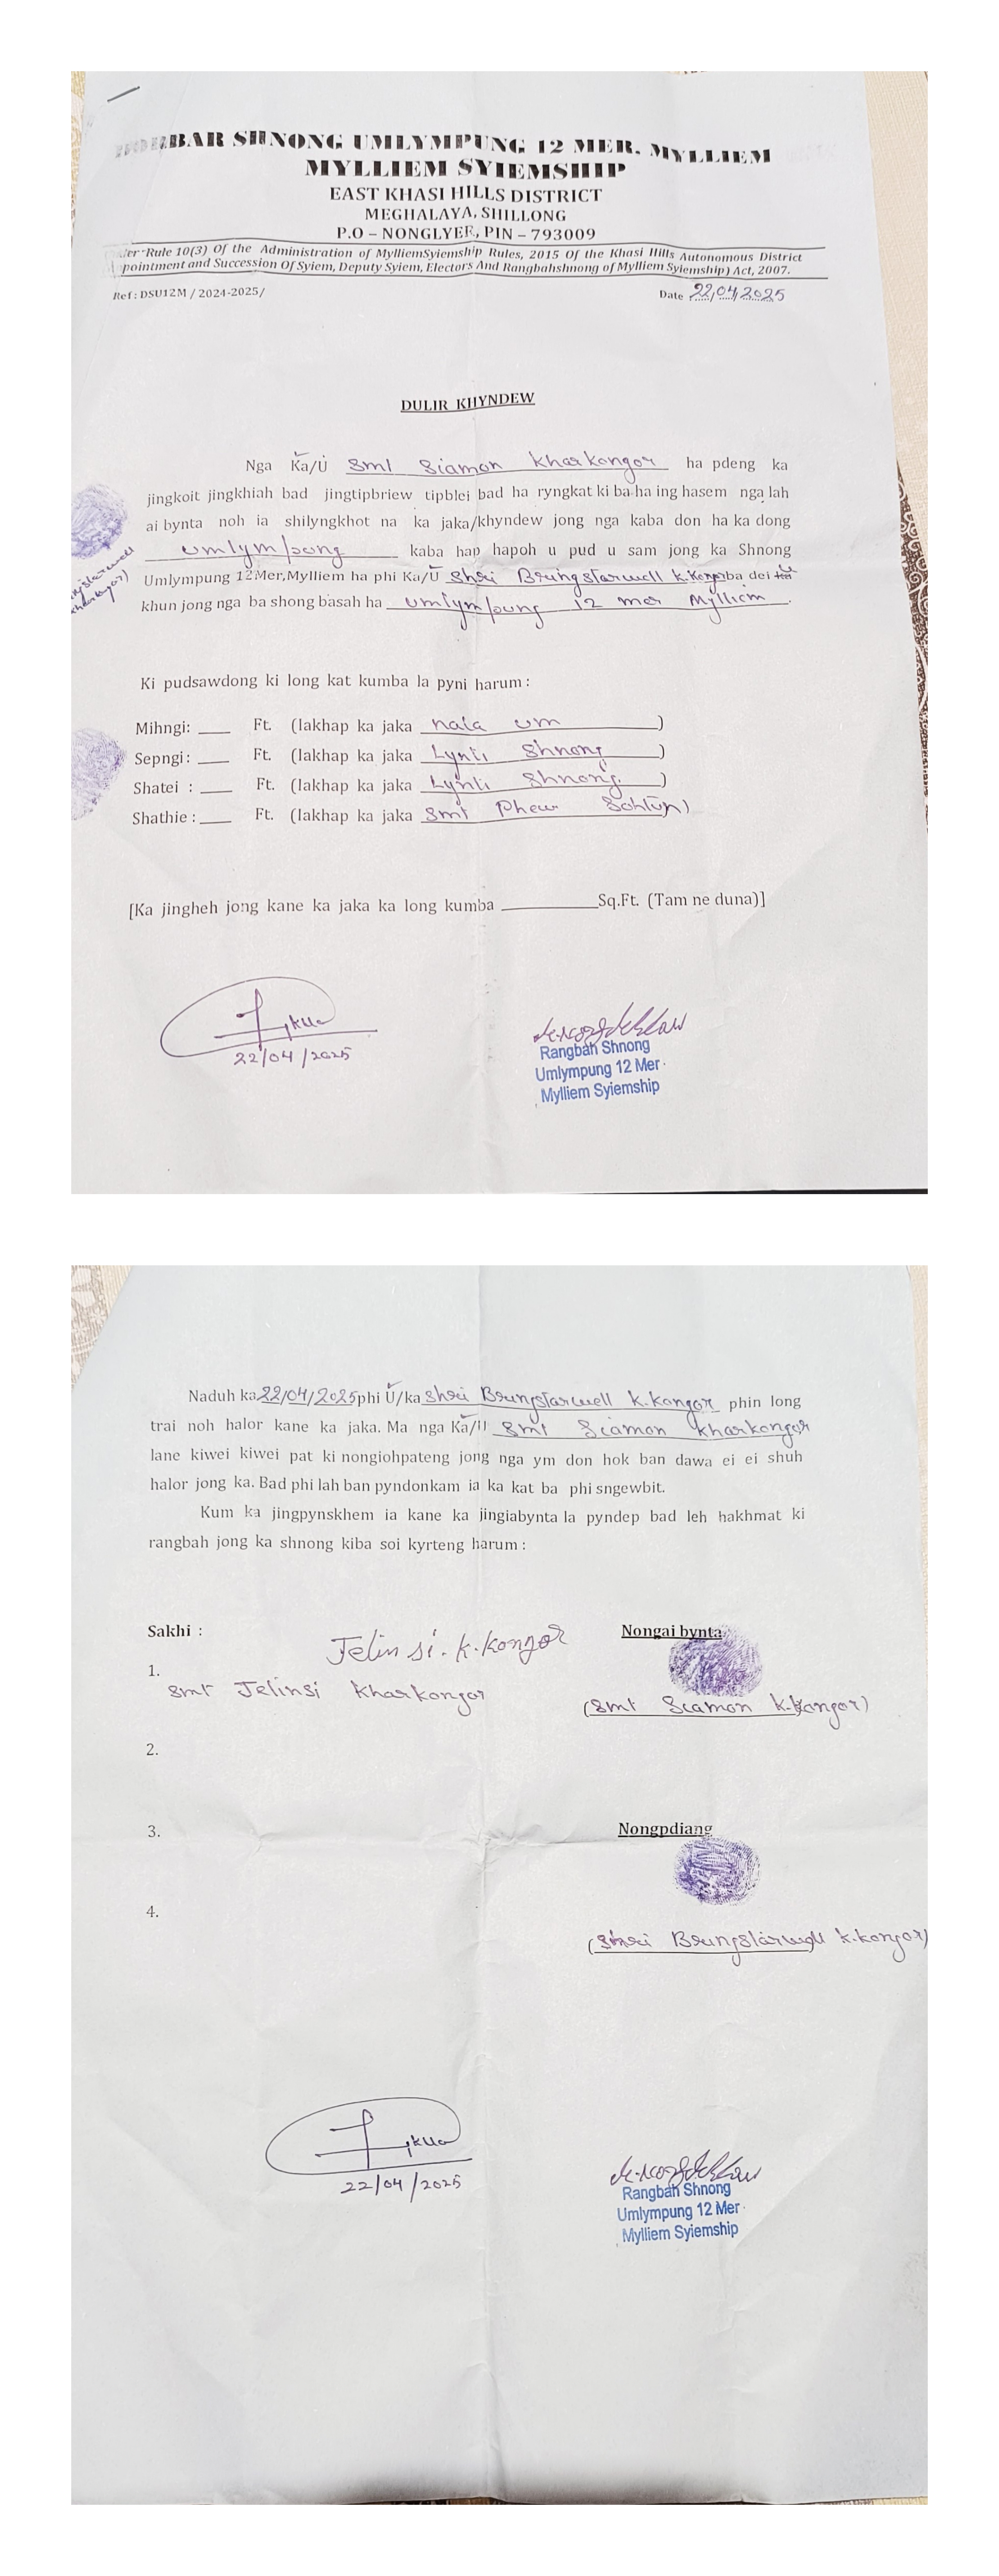 DORBAR SHNONG UMLYMPUNG 12 MER. MYLLIEM
MYLLIEM SYIEMSHIP
EAST KHASI HILLS DISTRICT
MEGHALAYA, SHILLONG
P.O – NONGLYER, PIN – 793009
Under Rule 10(3) Of the Administration of MylliemSyiemship Rules, 2015 Of the Khasi Hills Autonomous District
pointment and Succession Of Syiem, Deputy Syiem, Electors And Rangbahshnong of Mylliem Syiemship) Act, 2007.
Ref : DSU12M / 2024-2025/
Date 22/04/2025
DULIR KHYNDEW
Nga Ka/U Smt Siamon Kharkongor ha pdeng ka
jingkoit jingkhiah bad jingtipbriew tipblei bad ha ryngkat ki ba ha ing hasem nga lah
ai bynta noh ia shilyngkhot na ka jaka/khyndew jong nga kaba don ha ka dong
umlympung kaba hap hapoh u pud u sam jong ka Shnong
Umlympung 12Mer,Mylliem ha phi Ka/U Shri Bringstarwell K.Kongor ba dei u
khun jong nga ba shong basah ha umlympung 12 mer Mylliem.
Ki pudsawdong ki long kat kumba la pyni harum :
Mihngi: ____ Ft. (lakhap ka jaka nala um )
Sepngi: ____ Ft. (lakhap ka jaka Lynti Shnong )
Shatei : ____ Ft. (lakhap ka jaka Lynti Shnong. )
Shathie : ____ Ft. (lakhap ka jaka Smt Phew Sohtun)
[Ka jingheh jong kane ka jaka ka long kumba __________Sq.Ft. (Tam ne duna)]
22/04/2025
Rangbah Shnong
Umlympung 12 Mer
Mylliem Syiemship
Naduh ka 22/04/2025 phi U/ka Shri Bringstarwell K.Kongor phin long
trai noh halor kane ka jaka. Ma nga Ka/U Smt Siamon Kharkongor
lane kiwei kiwei pat ki nongiohpateng jong nga ym don hok ban dawa ei ei shuh
halor jong ka. Bad phi lah ban pyndonkam ia ka kat ba phi sngewbit.
Kum ka jingpynskhem ia kane ka jingiabynta la pyndep bad leh hakhmat ki
rangbah jong ka shnong kiba soi kyrteng harum :
Sakhi :
Nongai bynta
Jelinsi. K.Kongor
1.
Smt Jelinsi Kharkongor
(Smt Siamon K.Kongor)
2.
3.
Nongpdiang
4.
(Shri Bringstarwell K.Kongor)
22/04/2025
Rangbah Shnong
Umlympung 12 Mer
Mylliem Syiemship